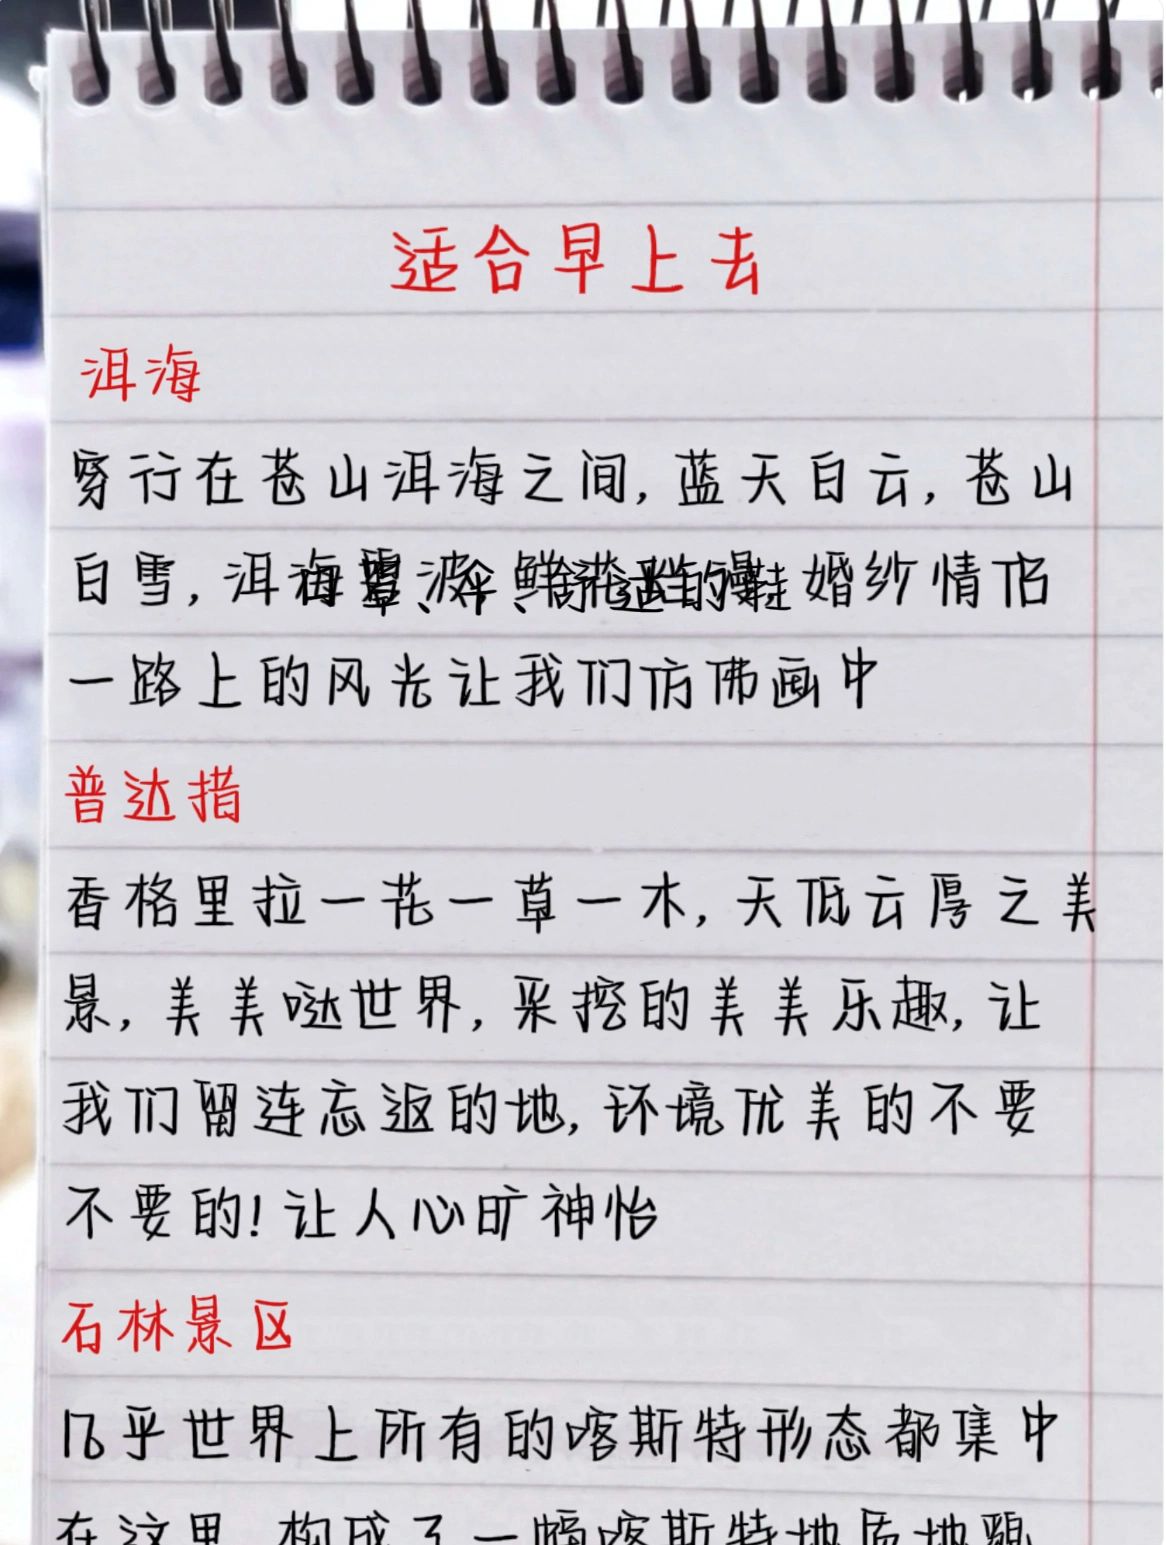 适合早上去
洱海
穿行在苍山洱海之间,蓝天白云,苍山
白雪,洱海 婚纱情侣
一路上的风光让我们仿佛画中
普达措
香格里拉一花一草一木,天低云厚之美
景,美美哒世界,采挖的美美乐趣,让
我们留连忘返的地,环境优美的不要
不要的!让人心旷神怡
石林景区
几乎世界上所有的喀斯特形态都集中
在这里 构成了一幅喀斯特地质地貌